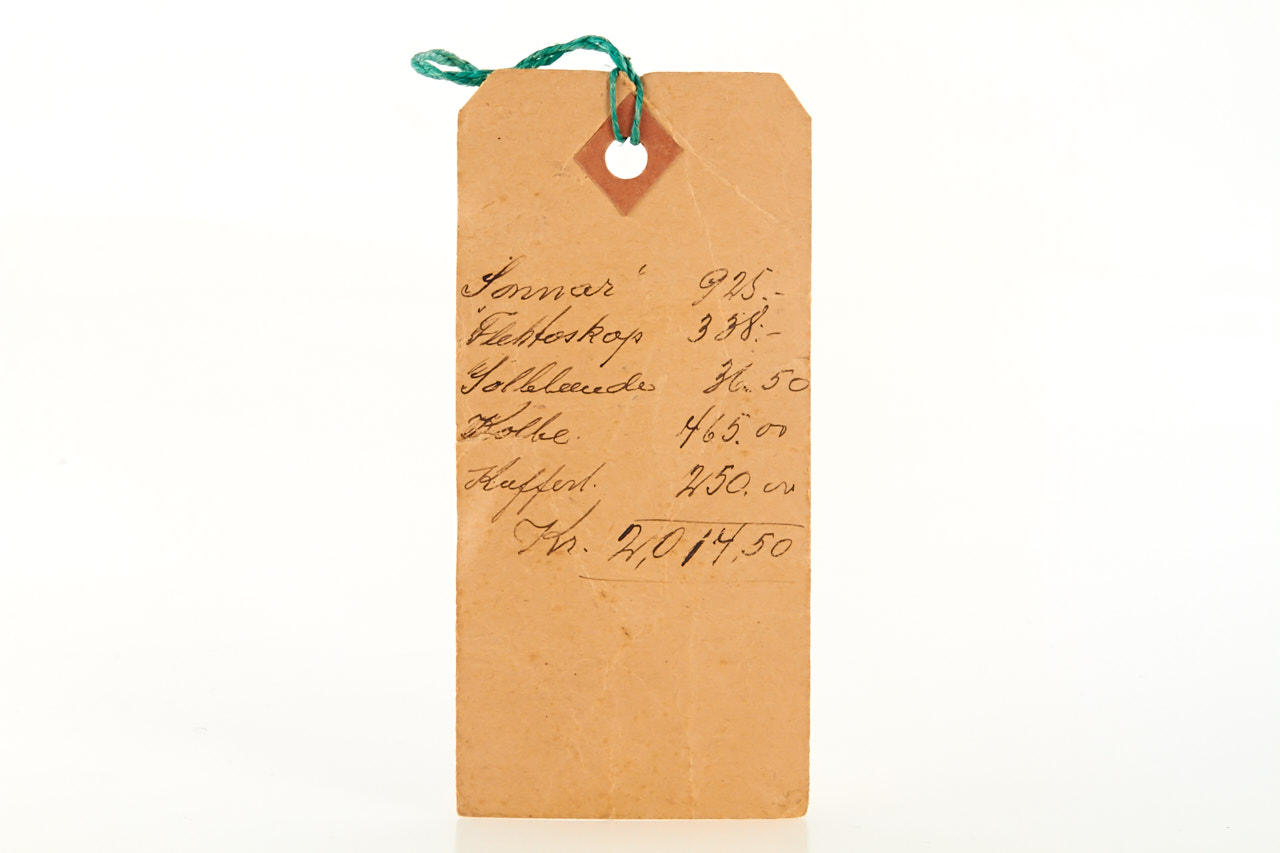 "Sonnar" 925.-
"Flektoskop 338.-
Sollblende 36.50
Kolbe. 465.00
Kuffert. 250.00
Kr. 2,014,50